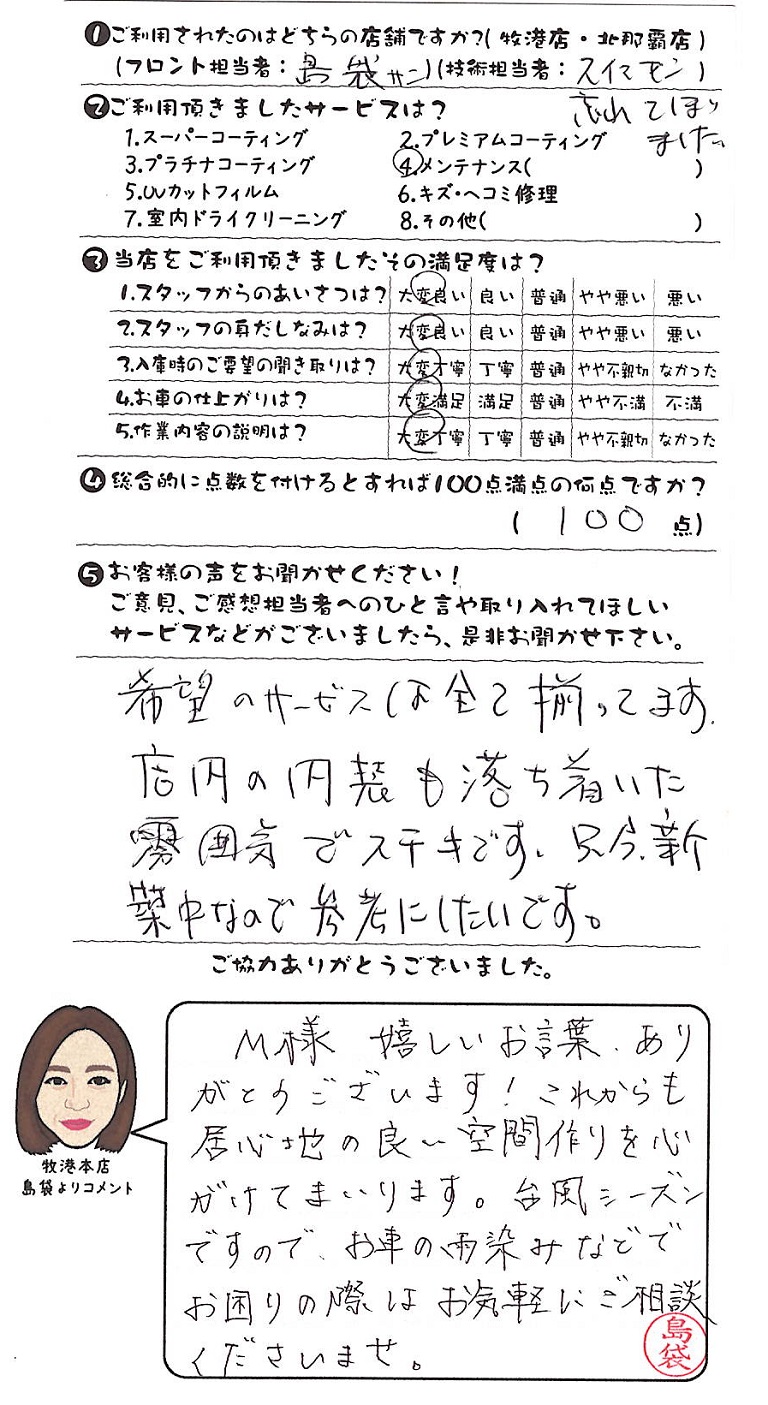 ❶ご利用されたのはどちらの店舗ですか?(牧港店・北那覇店)
(フロント担当者:島袋サン)(技術担当者:スイマセン)
忘れてしまいました
❷ご利用頂きましたサービスは?
1.スーパーコーティング 2.プレミアムコーティング
3.プラチナコーティング 4.メンテナンス( )
5.UVカットフィルム 6.キズ・ヘコミ修理
7.室内ドライクリーニング 8.その他( )
❸当店をご利用頂きましたその満足度は?
1.スタッフからのあいさつは? 大変良い 良い 普通 やや悪い 悪い
2.スタッフの身だしなみは? 大変良い 良い 普通 やや悪い 悪い
3.入庫時のご要望の聞き取りは? 大変丁寧 丁寧 普通 やや不親切 なかった
4.お車の仕上がりは? 大変満足 満足 普通 やや不満 不満
5.作業内容の説明は? 大変丁寧 丁寧 普通 やや不親切 なかった
❹総合的に点数を付けるとすれば100点満点の何点ですか?
(100点)
❺お客様の声をお聞かせください!
ご意見、ご感想担当者へのひと言や取り入れてほしい
サービスなどがございましたら、是非お聞かせ下さい。
希望のサービスは全て揃ってます。
店内の内装も落ち着いた
雰囲気でステキです。只今、新
築中なので参考にしたいです。
ご協力ありがとうございました。
M様 嬉しいお言葉、あり
がとうございます!これからも
居心地の良い空間作りを心
がけてまいります。台風シーズン
ですので、お車の雨染みなどで
お困りの際はお気軽にご相談
くださいませ。
牧港本店
島袋よりコメント
島袋